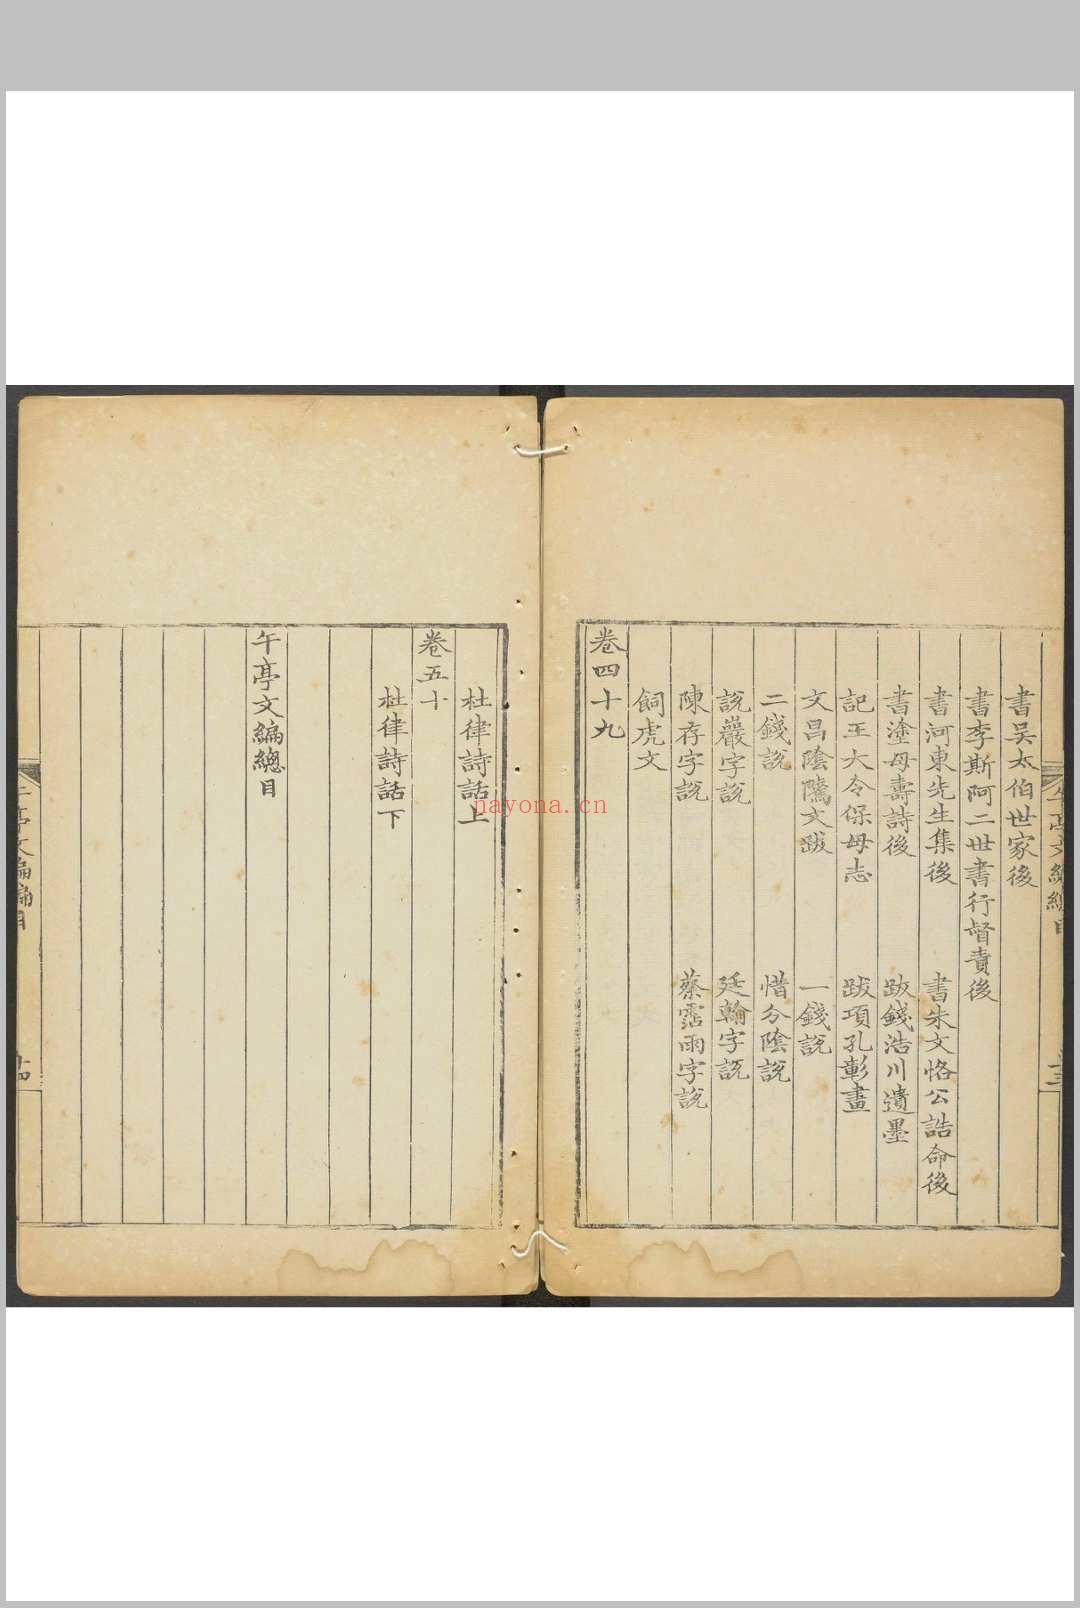 書吴太伯世家後
書李斯阿二世書行督責後
書河東先生集後 書朱文恪公誥命後
書塗母壽詩後 跋錢浩川遺墨
記王大令保母志 跋項孔彰畫
文昌陰隲文跋 一錢說
二錢說 惜分陰說
說巖字說 廷翰字說
陳存字說 蔡霑雨字說
飼虎文
卷四十九
杜律詩話上
卷五十
杜律詩話下
午亭文編總目
nayona.cn